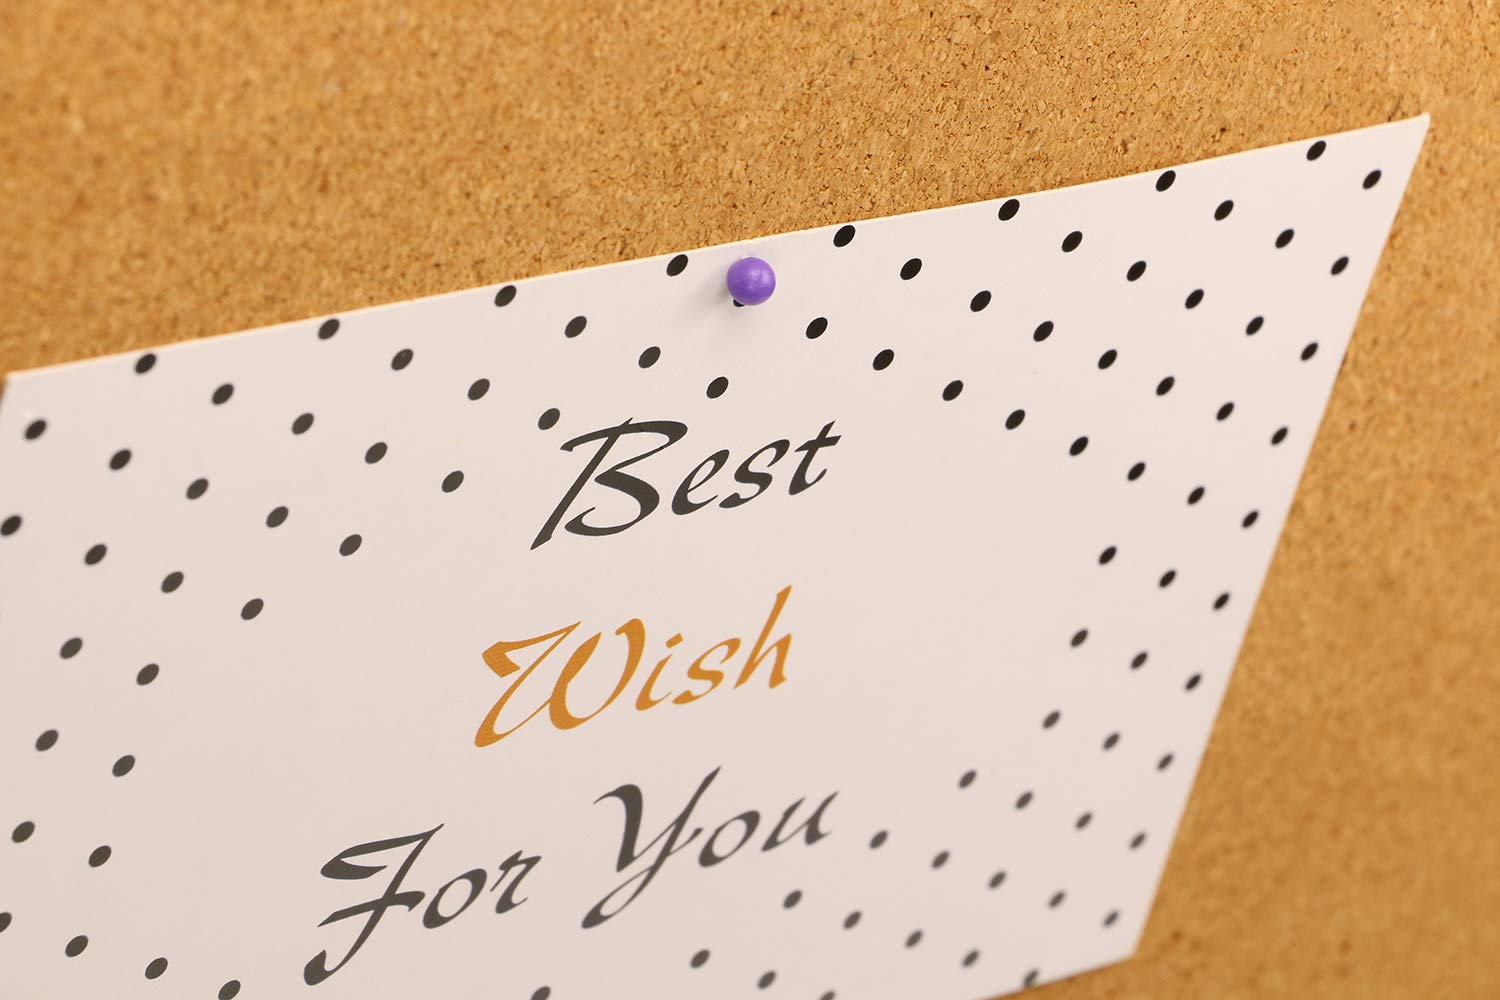 Best
Wish
For You